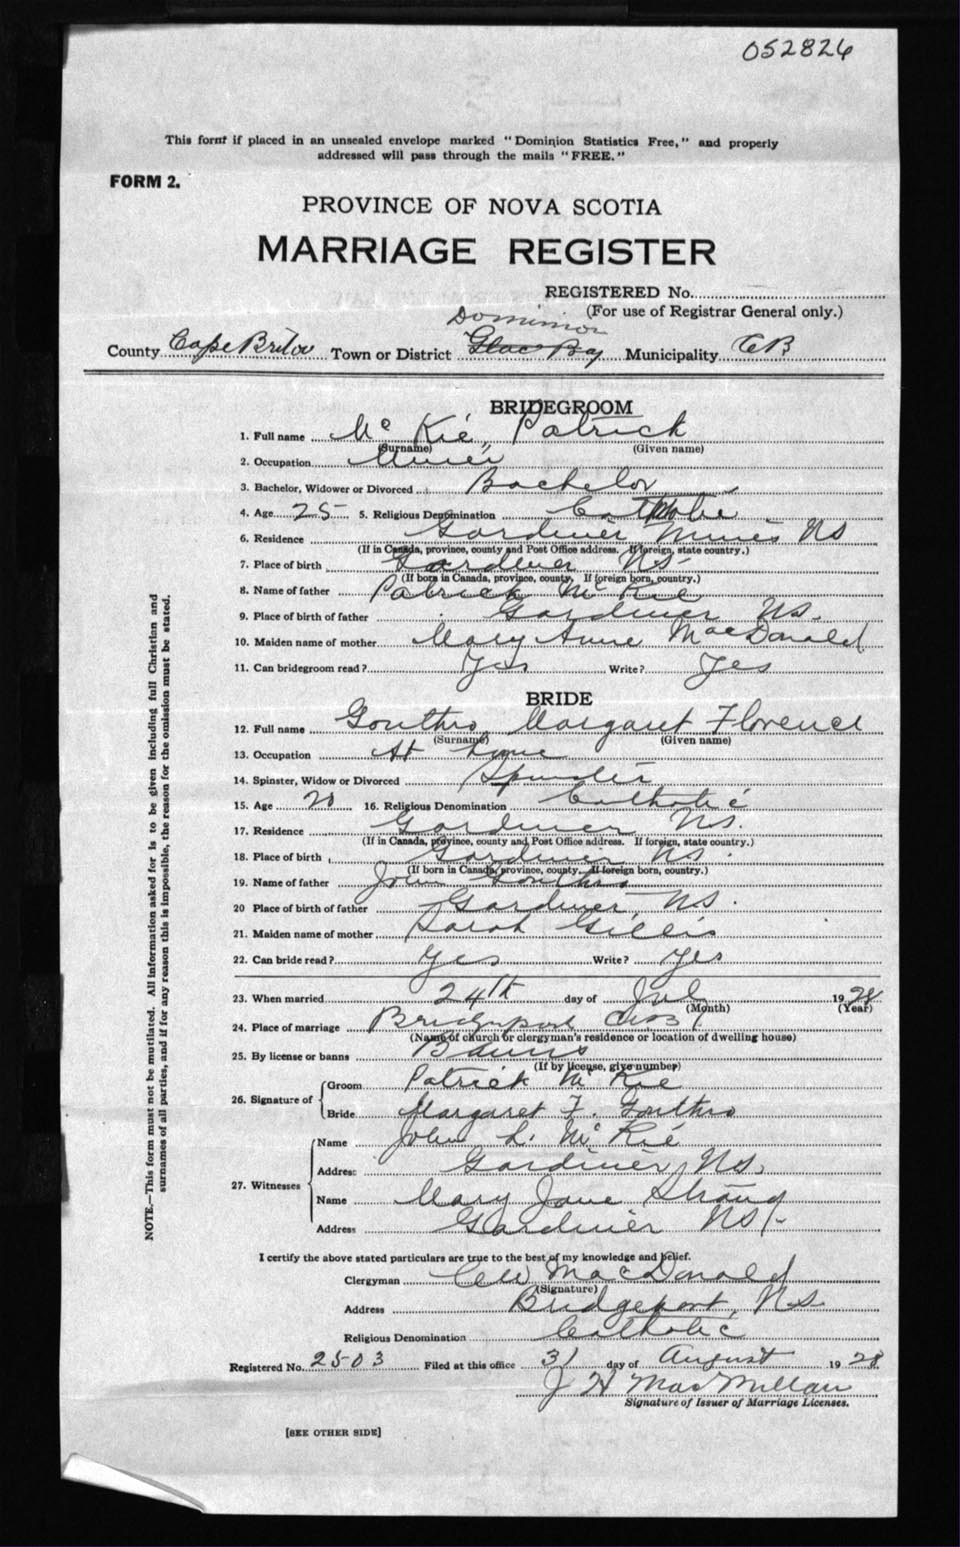 052826
This form if placed in an unsealed envelope marked "Dominion Statistics Free," and properly
addressed will pass through the mails "FREE."
FORM 2.
PROVINCE OF NOVA SCOTIA
MARRIAGE REGISTER
REGISTERED No.
(For use of Registrar General only.)
Dominion
County Cape Breton Town or District Glace Bay Municipality CB
BRIDEGROOM
1. Full name Mc Kie, Patrick
(Surname) (Given name)
2. Occupation Miner
3. Bachelor, Widower or Divorced Bachelor
4. Age 25 5. Religious Denomination Catholic
6. Residence Gardiner Mines NS
(If in Canada, province, county and Post Office address. If foreign, state country.)
7. Place of birth Gardiner NS
(If born in Canada, province, county. If foreign born, country.)
8. Name of father Patrick Mc Kie
9. Place of birth of father Gardiner NS.
10. Maiden name of mother Mary Anne MacDonald
11. Can bridegroom read? Yes Write? Yes
BRIDE
12. Full name Gouthro Margaret Florence
(Surname) (Given name)
13. Occupation At home
14. Spinster, Widow or Divorced Spinster
15. Age 20 16. Religious Denomination Catholic
17. Residence Gardiner NS.
(If in Canada, province, county and Post Office address. If foreign, state country.)
18. Place of birth Gardiner NS.
(If born in Canada, province, county. If foreign born, country.)
19. Name of father John Gouthro
20 Place of birth of father Gardiner, NS.
21. Maiden name of mother Sarah Gillis
22. Can bride read? Yes Write? Yes
23. When married 24th day of July 1928
(Month) (Year)
24. Place of marriage Bridgeport
(Name of church or clergyman's residence or location of dwelling house)
25. By license or banns Banns
(If by license, give number)
26. Signature of Groom Patrick Mc Kie
Bride Margaret F. Gouthro
27. Witnesses Name John L. Mc Kie
Address Gardiner, NS.
Name Mary Jane Strang
Address Gardiner NS
I certify the above stated particulars are true to the best of my knowledge and belief.
Clergyman MacDonald
(Signature)
Address Bridgeport, NS.
Religious Denomination Catholic
Registered No. 2503 Filed at this office 31 day of August 1928
J H MacMillan
Signature of Issuer of Marriage Licenses.
[SEE OTHER SIDE]
NOTE.—This form must not be mutilated. All information asked for is to be given including full Christian and
surnames of all parties, and if for any reason this is impossible, the reason for the omission must be stated.